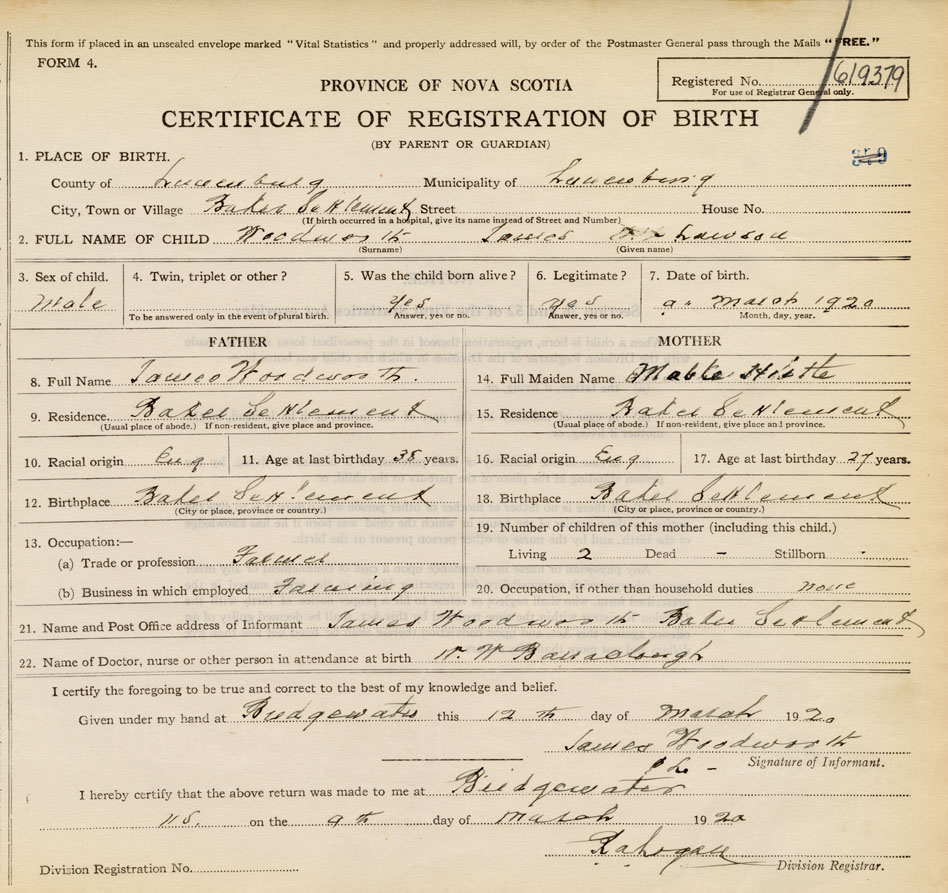 This form if placed in an unsealed envelope marked "Vital Statistics" and properly addressed will, by order of the Postmaster General pass through the Mails "FREE."
FORM 4.
PROVINCE OF NOVA SCOTIA
Registered No. 619379
For use of Registrar General only.
CERTIFICATE OF REGISTRATION OF BIRTH
(BY PARENT OR GUARDIAN)
1. PLACE OF BIRTH.
County of Lunenburg Municipality of Lunenburg
City, Town or Village Baker Settlement Street House No.
(If birth occurred in a hospital, give its name instead of Street and Number)
2. FULL NAME OF CHILD Woodworth James Lawson
(Surname) (Given name)
3. Sex of child. 4. Twin, triplet or other? 5. Was the child born alive? 6. Legitimate? 7. Date of birth.
Male yes yes 9" March 1920
To be answered only in the event of plural birth. Answer, yes or no. Answer, yes or no. Month, day, year.
FATHER MOTHER
8. Full Name James Woodworth. 14. Full Maiden Name Mable Hirtle
9. Residence. Baker Settlement 15. Residence Baker Settlement
(Usual place of abode.) If non-resident, give place and province. (Usual place of abode.) If non-resident, give place and province.
10. Racial origin Eng 11. Age at last birthday 38 years. 16. Racial origin Eng 17. Age at last birthday 27 years.
12. Birthplace Baker Settlement 18. Birthplace Baker Settlement
(City or place, province or country.) (City or place, province or country.)
13. Occupation:— 19. Number of children of this mother (including this child.)
(a) Trade or profession Farmer Living 2 Dead - Stillborn -
(b) Business in which employed Farming 20. Occupation, if other than household duties none
21. Name and Post Office address of Informant James Woodworth Baker Settlement
22. Name of Doctor, nurse or other person in attendance at birth W. Barraclough
I certify the foregoing to be true and correct to the best of my knowledge and belief.
Given under my hand at Bridgewater this 12 th day of March 1920
James Woodworth
Signature of Informant.
I hereby certify that the above return was made to me at Bridgewater
N.S. on the 9th day of March 1920
Division Registration No. Division Registrar.